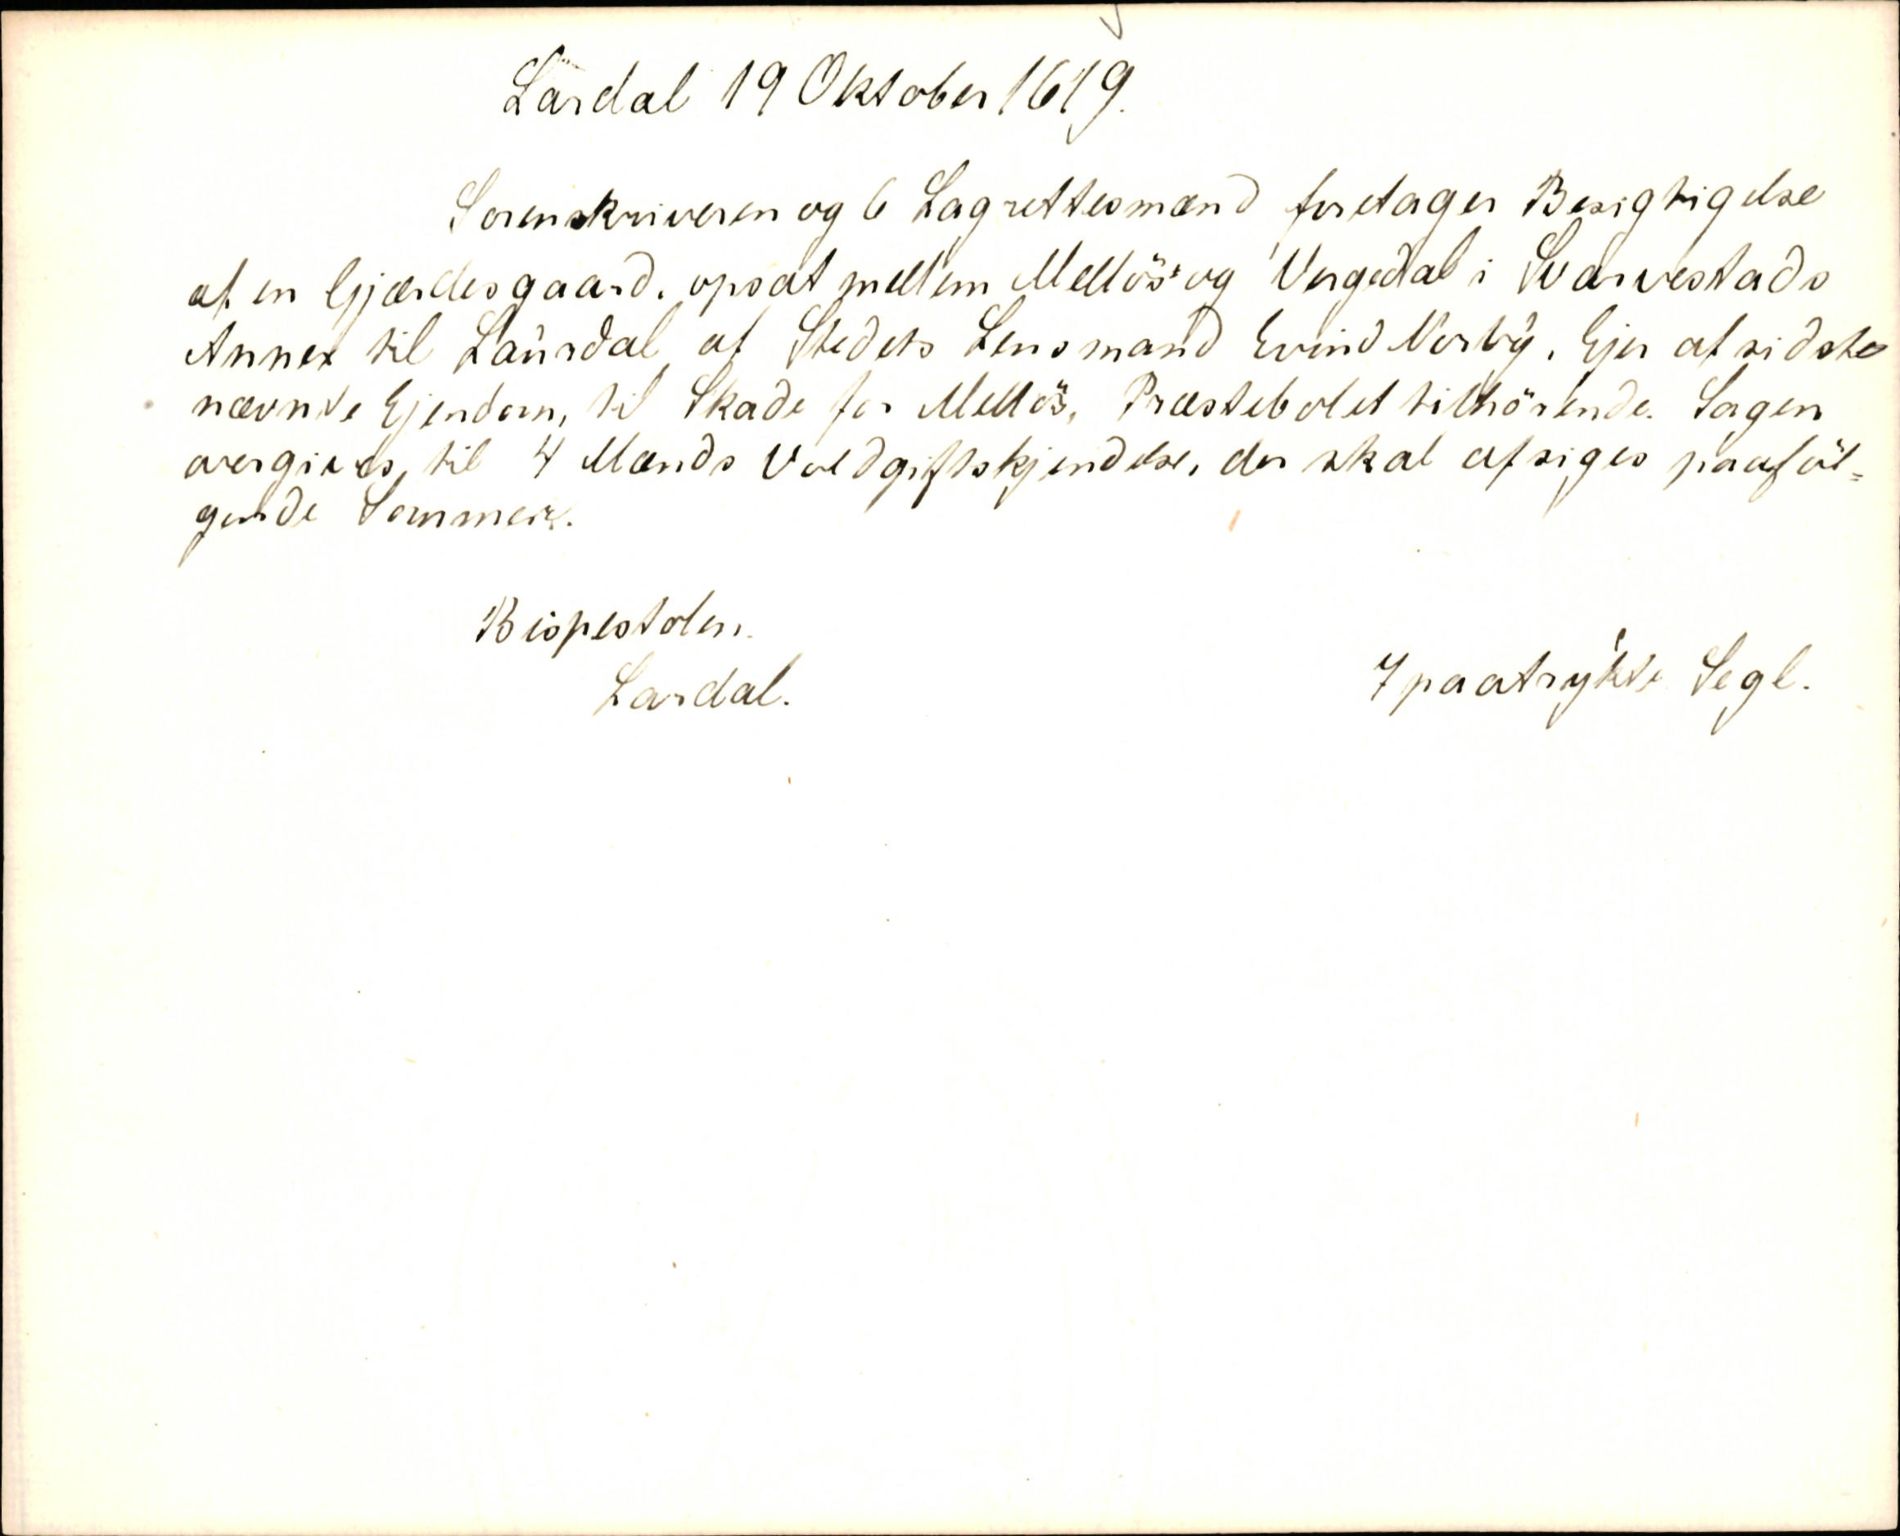 Lardal 19 Oktober 1619.
Sorenskriveren og 6 Lagrettesmænd foretager Besigtigelse
af en Gjærdesgaard, opsat mellem Mellös og Vergedal i Svarvestads
Annex til Laurdal af Stedets Lensmand Evind Verby, Ejer af sidste
nævnte Ejendom, til Skade for Mellös, Præstebolet tilhörende. Sagen
overgives til 4 Mænds Voldgiftskjendelse, der skal afsiges paaföl=
gende Sommer.
Bispestolen.
Lardal.
7 paatrykte Segl.